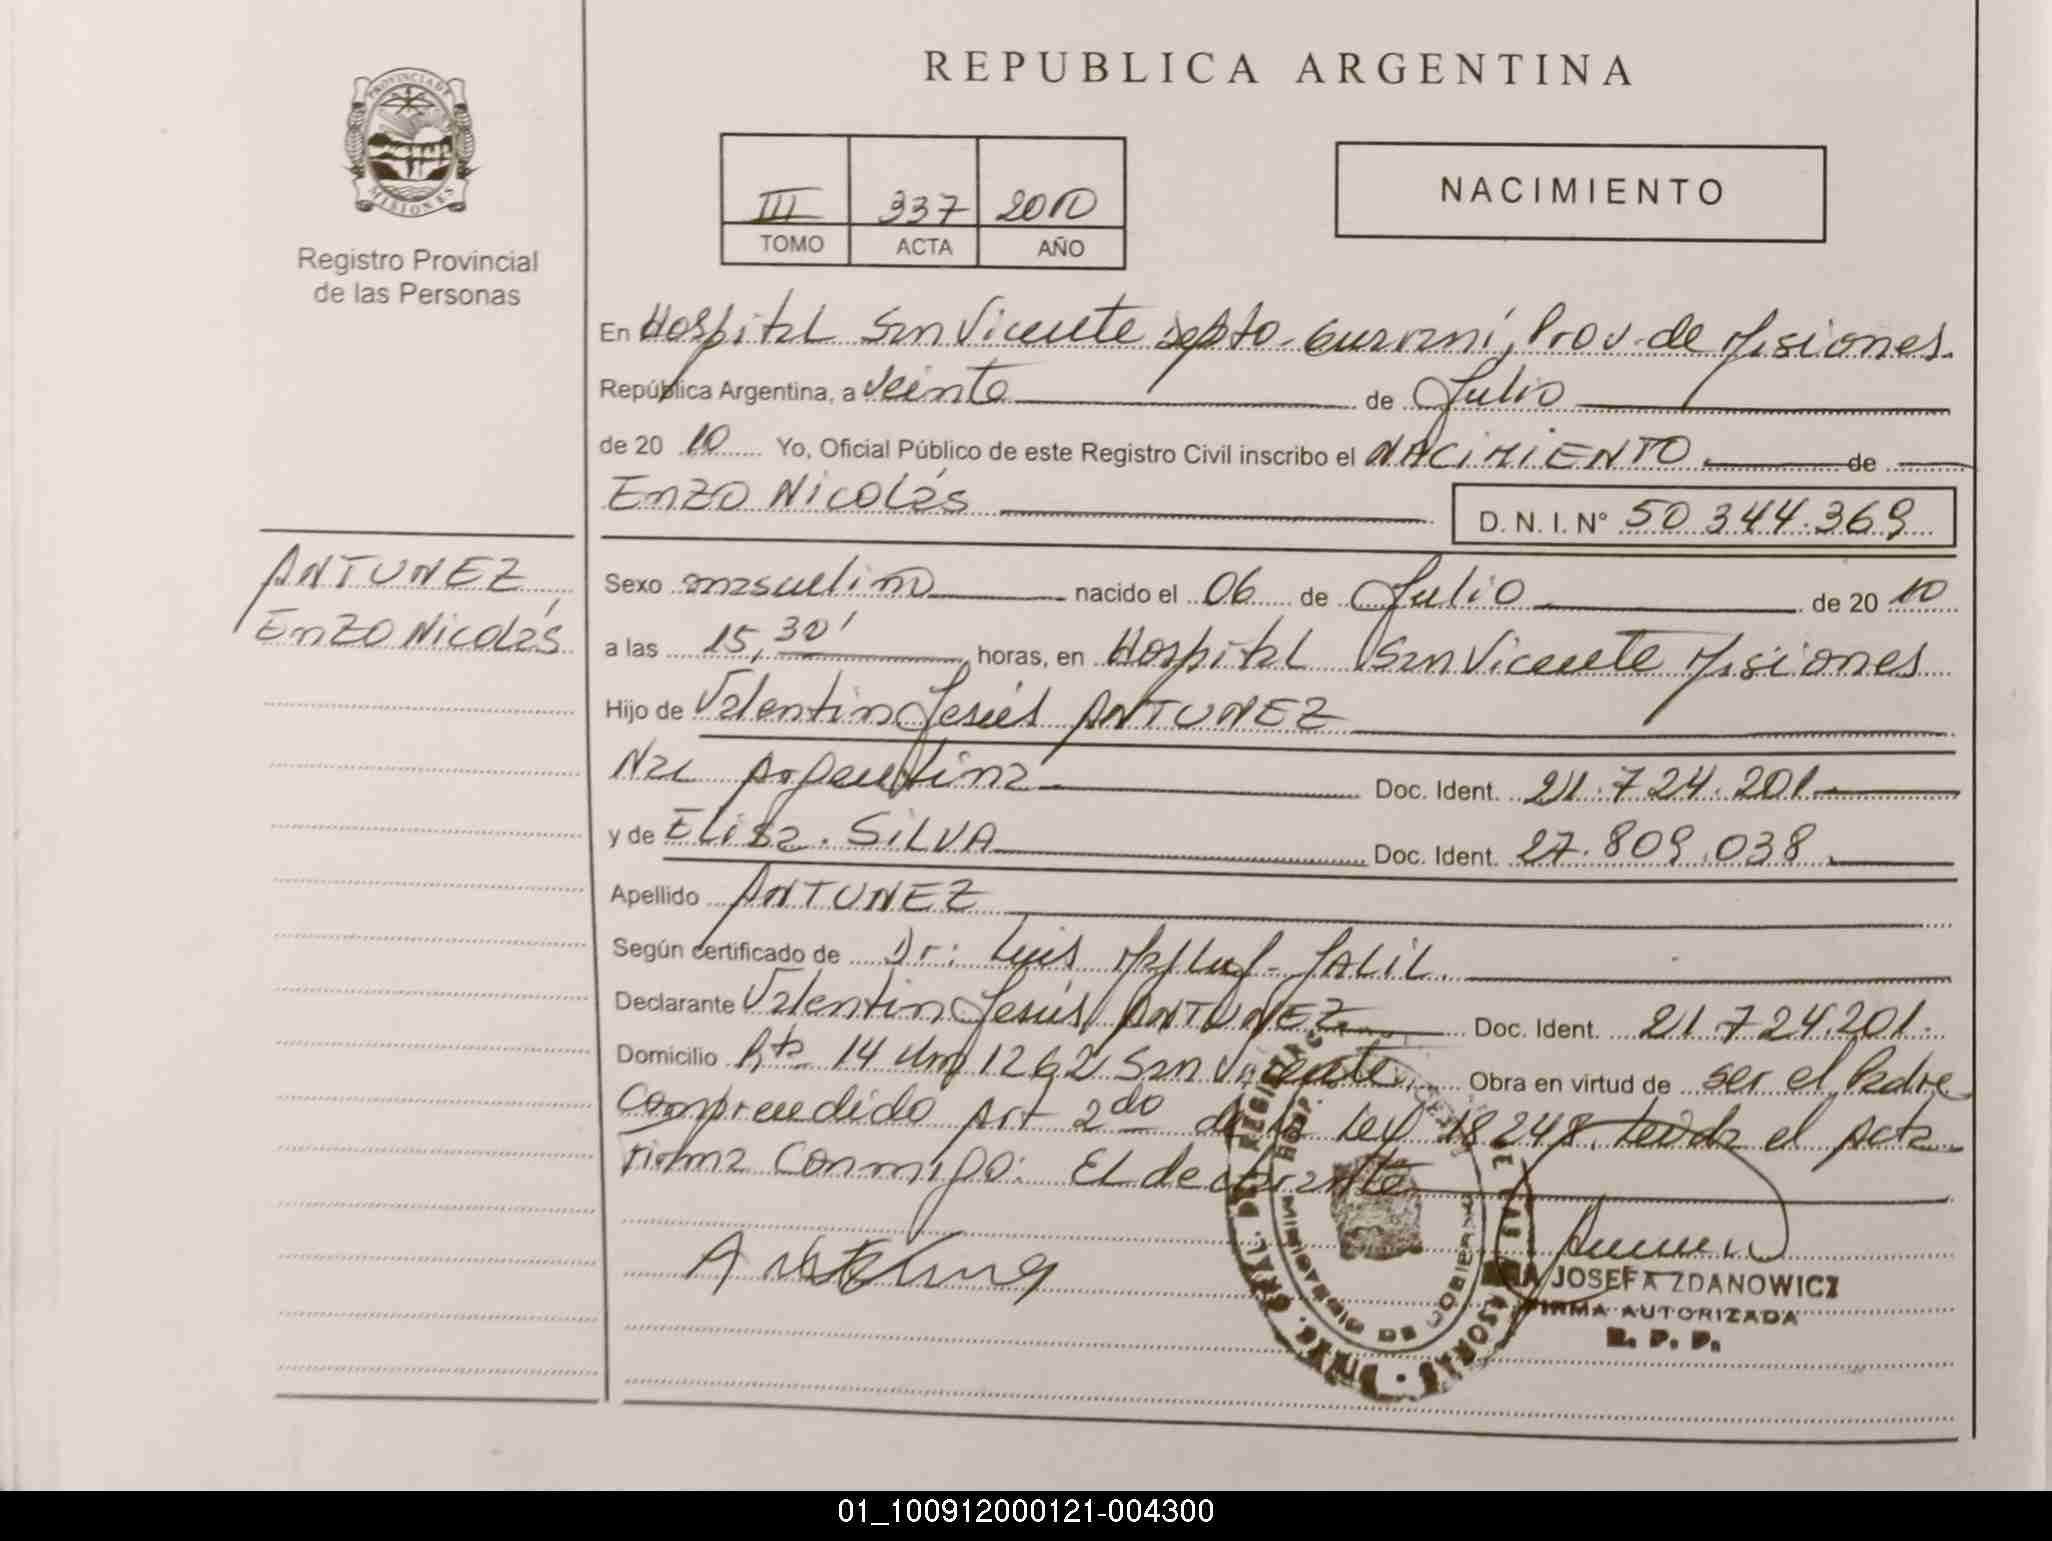 REPUBLICA ARGENTINA
PROVINCIA DE
MISIONES
Registro Provincial
de las Personas
III 337 2010
TOMO ACTA AÑO
NACIMIENTO
En Hospital San Vicente Depto. Guaraní, Prov. de Misiones.
República Argentina, a veinte de Julio
de 20 10 Yo, Oficial Público de este Registro Civil inscribo el NACIMIENTO de
Enzo Nicolás
D. N. I. N° 50.344.369
ANTUNEZ,
Enzo Nicolás
Sexo masculino nacido el 06 de Julio de 20 10
a las 15,30' horas, en Hospital San Vicente Misiones
Hijo de Valentin Jesús ANTUNEZ
Nac Argentina Doc. Ident. 21.724.201
y de Elisa. SILVA Doc. Ident. 27.809.038
Apellido ANTUNEZ
Según certificado de Dr: Luis JALIL.
Declarante Valentin Jesús ANTUNEZ Doc. Ident. 21.724.201.
Domicilio Rta 14 Km 1262 San Vicente Obra en virtud de ser el Padre
Comprendido Art 2do de la Ley 18248. Leída el Acta
Firma Conmigo: El declarante
JOSEFA ZDANOWICZ
FIRMA AUTORIZADA
R. P. P.
01_100912000121-004300